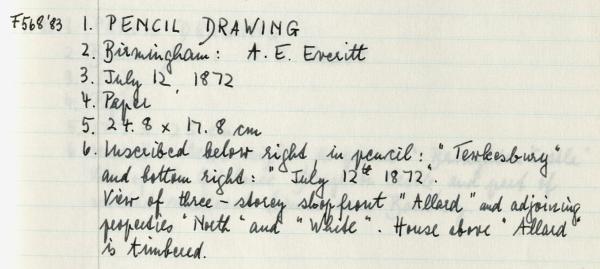 F568'83 1. PENCIL DRAWING
2. Birmingham: A. E. Everitt
3. July 12, 1872
4. Paper
5. 24.8 x 17.8 cm
6. Inscribed below right, in pencil: "Tewkesbury"
and bottom right: "July 12th 1872".
View of three-storey shopfront "Allard" and adjoining
properties "North" and "White". House above "Allard"
is timbered.